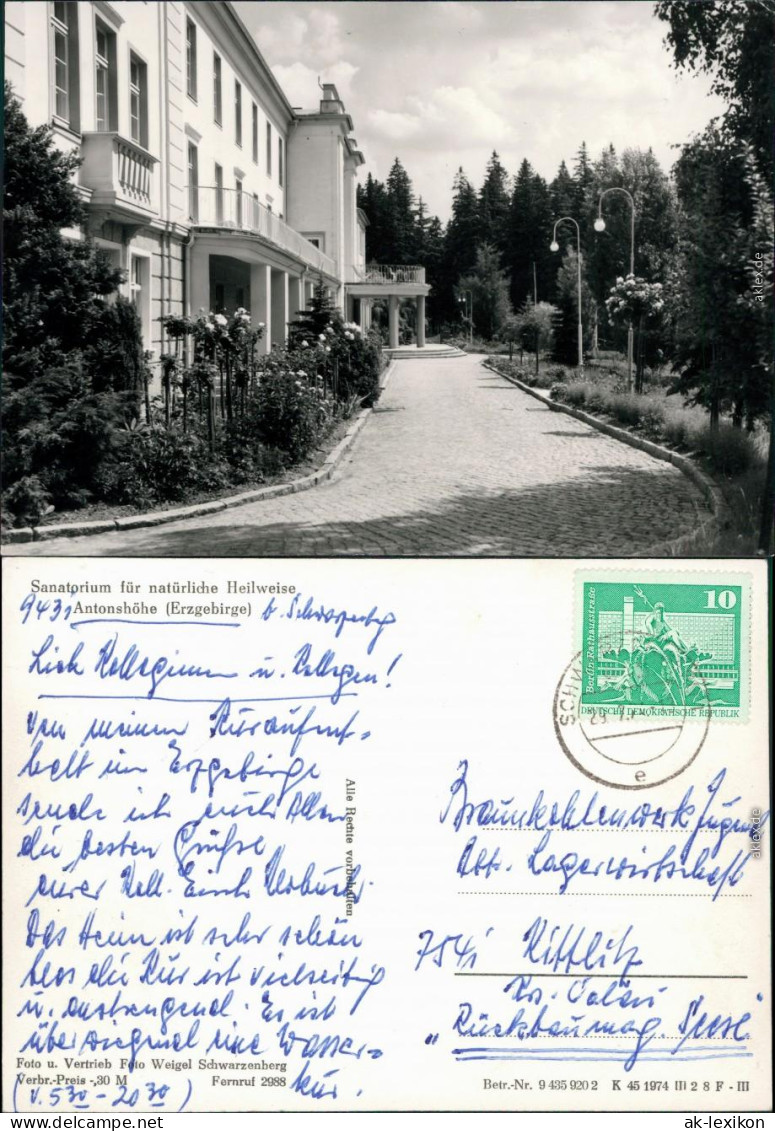 aklex.de
Sanatorium für natürliche Heilweise
9431 Antonshöhe (Erzgebirge) b. Schwarzenberg
Lieb Kolleginnen u. Kollegen!
Von meinem Kuraufent-
halt im Erzgebirge
sende ich euch Allen
die besten Grüße
eurer Koll.
Das Heim ist sehr schön
blos die Kur ist vielseitig
u. anstrengend. Es ist
überwiegend eine Wasser-
kur.
(v. 5 30 - 20 30)
Alle Rechte vorbehalten
Foto u. Vertrieb Foto Weigel Schwarzenberg
Verbr.-Preis -,30 M Fernruf 2988
Berlin-Rathausstraße
10
DEUTSCHE DEMOKRATISCHE REPUBLIK
e
Braunkohlenwerk Jugend
Abt. Lagerwirtschaft
7541 Kittlitz
Krs. Calau
"Rückbaumag. Seese"
Betr.-Nr. 9 435 920 2 K 45 1974 III 2 8 F - III
aklex.de
www.delcampe.net
ak-lexikon